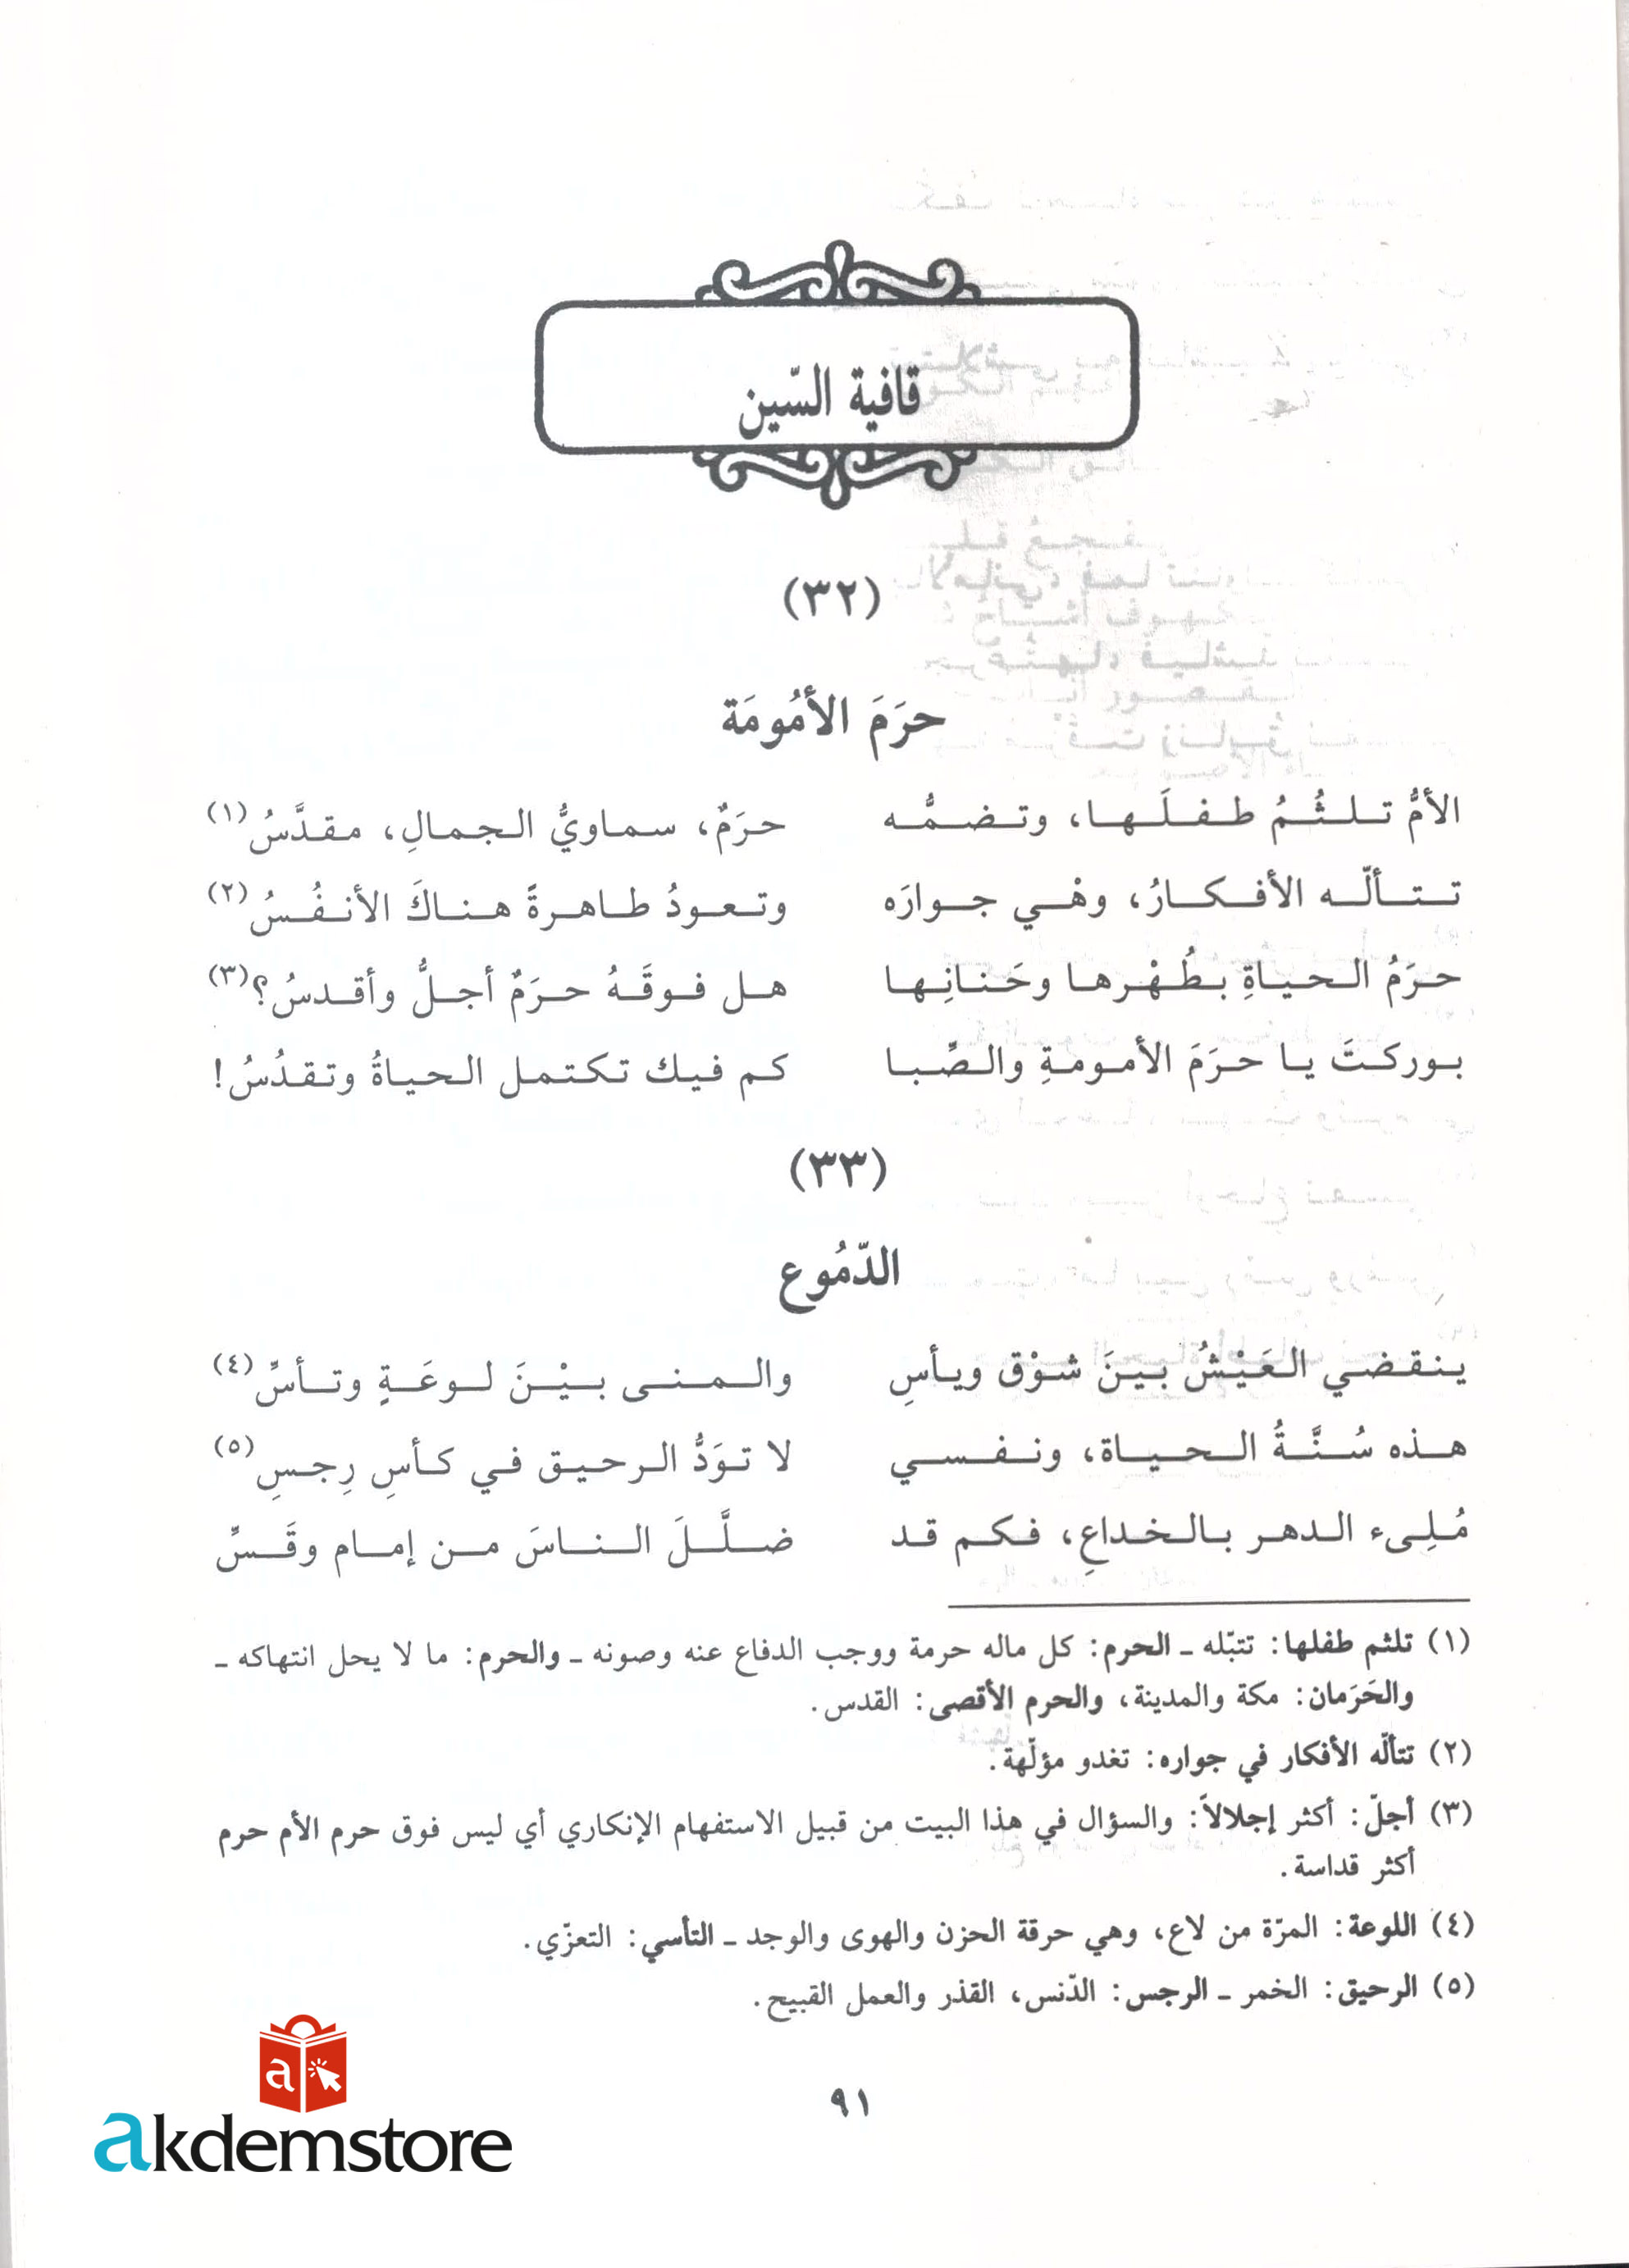 قافية السّين
(٣٢)
حرَمَ الأمُومَة
الأمُّ تلثُمُ طفلَها، وتضمُّه حرَمٌ، سماويُّ الجمالِ، مقدَّسُ (١)
تتألّه الأفكارُ، وهْي جوارَه وتعودُ طاهرةً هناكَ الأنفُسُ (٢)
حرَمُ الحياةِ بطُهْرها وحَنانِها هل فوقَهُ حرَمٌ أجلُّ وأقدسُ؟ (٣)
بوركتَ يا حرَمَ الأمومةِ والصِّبا كم فيك تكتمل الحياةُ وتقدُسُ!
(٣٣)
الدّمُوع
ينقضي العَيْشُ بينَ شوْق ويأسِ والمنى بيْنَ لوعَةٍ وتأسِّ (٤)
هذه سُنَّةُ الحياة، ونفسي لا توَدُّ الرحيق في كأسِ رِجسِ (٥)
مُلِىء الدهر بالخداعِ، فكم قد ضلَّلَ الناسَ من إمام وقَسِّ
(١) تلثم طفلها: تتبّله ـ الحرم: كل ماله حرمة ووجب الدفاع عنه وصونه ـ والحرم: ما لا يحل انتهاكه ـ
والحَرَمان: مكة والمدينة، والحرم الأقصى: القدس.
(٢) تتألّه الأفكار في جواره: تغدو مؤلّهة.
(٣) أجلّ: أكثر إجلالاً: والسؤال في هذا البيت من قبيل الاستفهام الإنكاري أي ليس فوق حرم الأم حرم
أكثر قداسة.
(٤) اللوعة: المرّة من لاع، وهي حرقة الحزن والهوى والوجد ـ التأسي: التعزّي.
(٥) الرحيق: الخمر ـ الرجس: الدّنس، القذر والعمل القبيح.
٩١
a
akdemstore